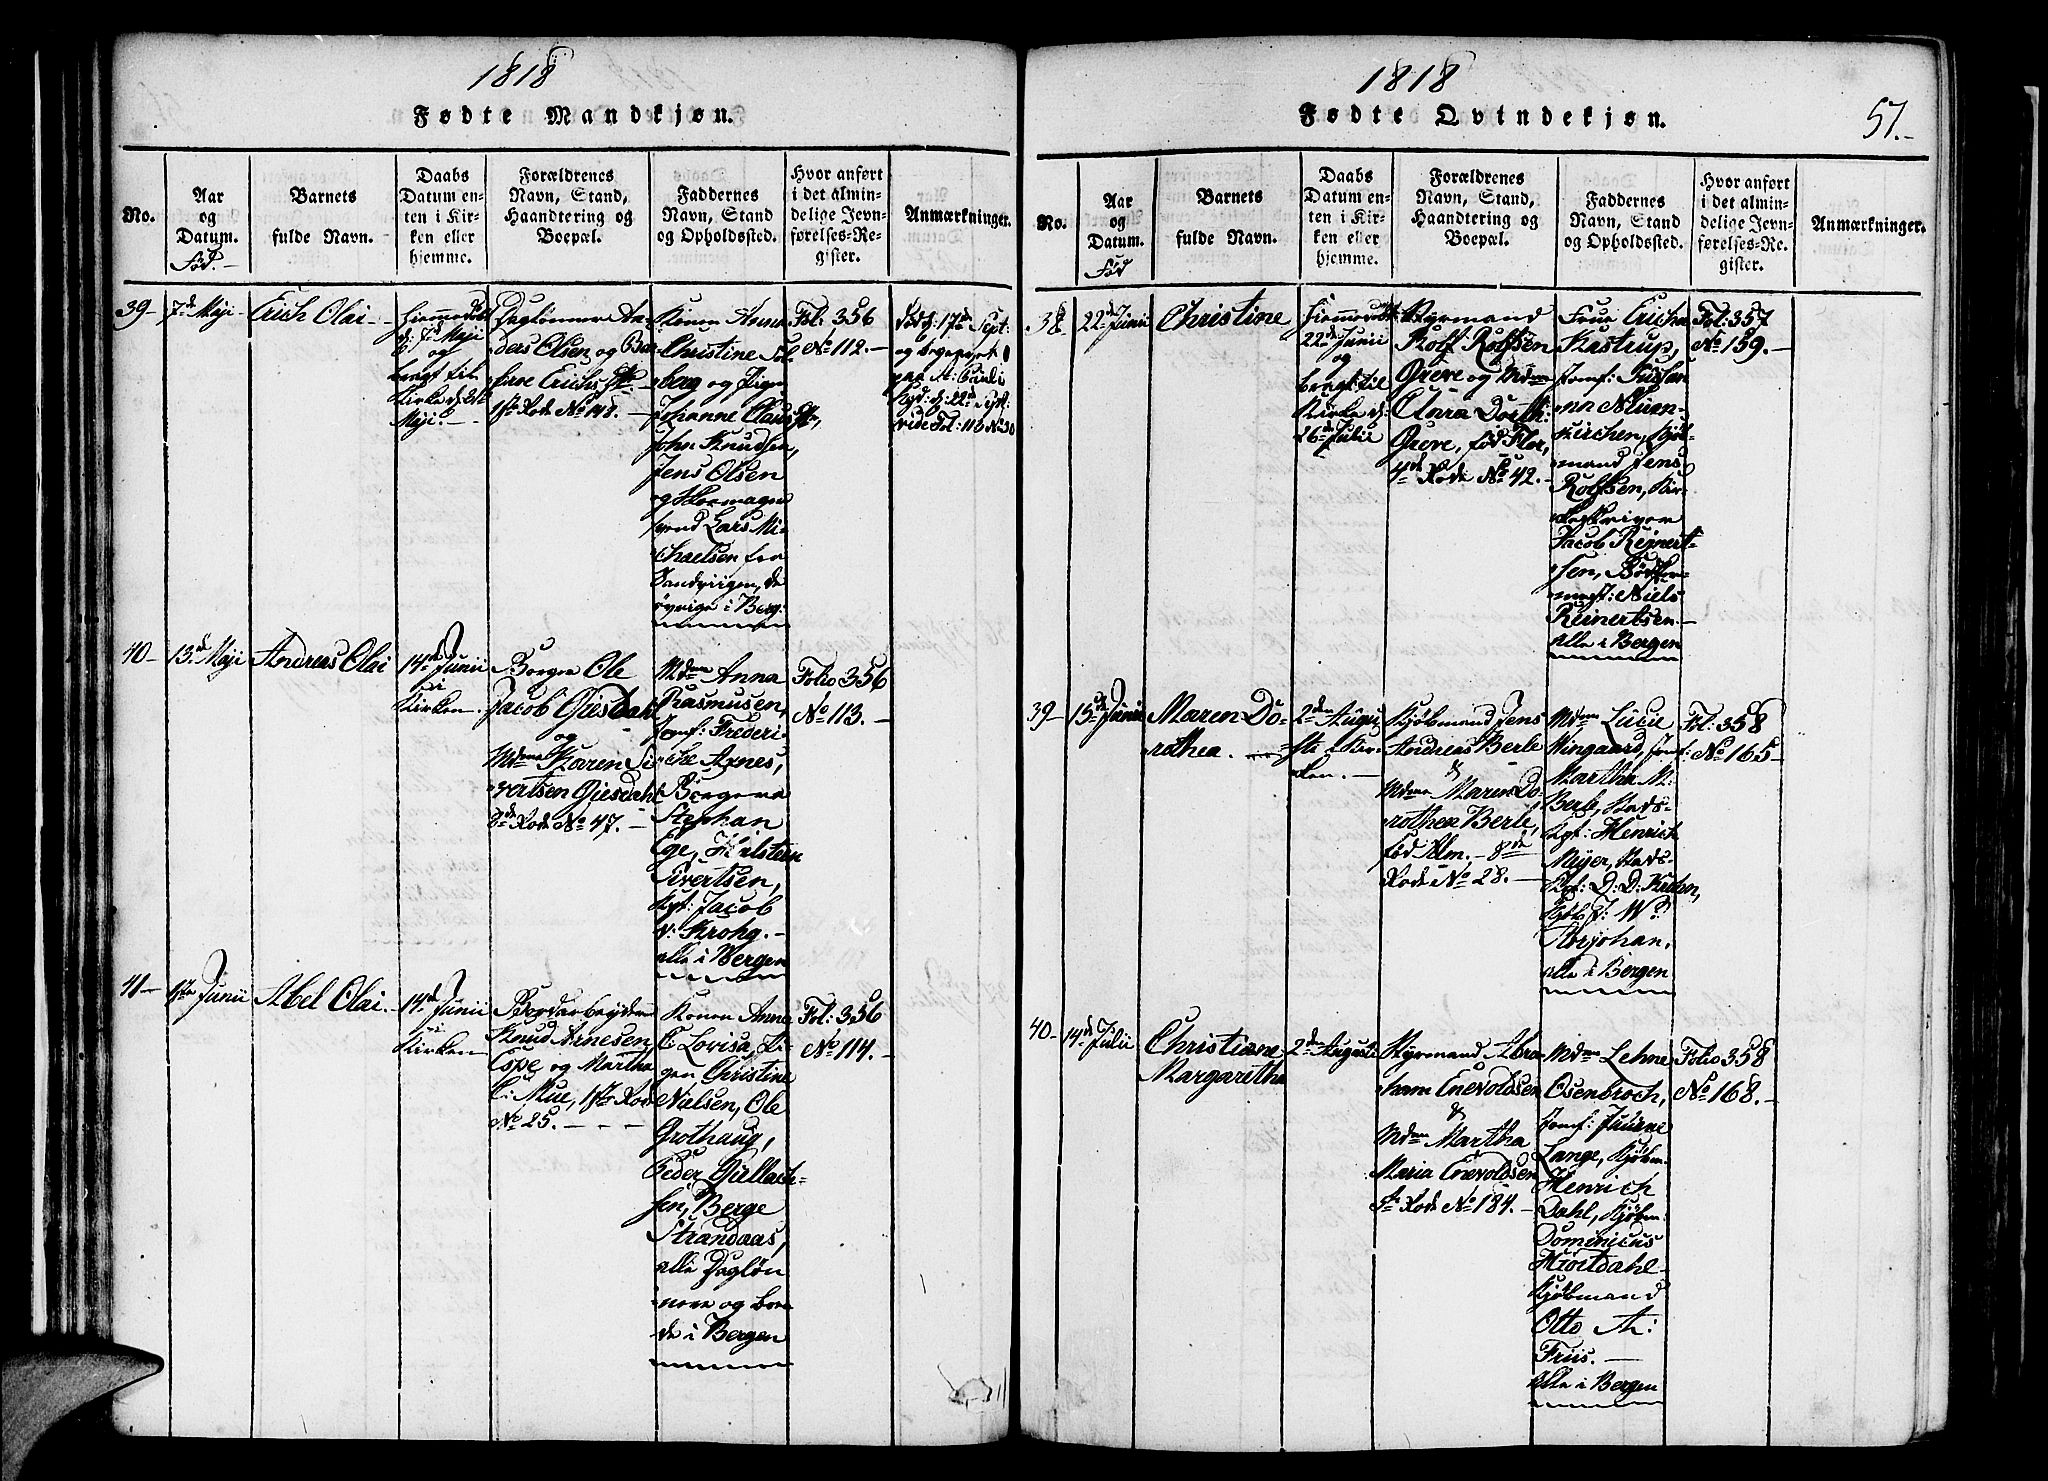 1818
Fødte Mandkjøn.
No.
Aar
og
Datum.
Fød.
Barnets
fulde Navn.
Daabs
Datum en-
ten i Kir-
ken eller
hjemme.
Forældrenes
Navn, Stand,
Haandtering og
Boepæl.
Faddernes
Navn, Stand
og Opholdssted.
Hvor anført
i det almin-
delige Jevn-
førelses-Re-
gister.
Anmærkninger.
39-
7de Maji
Erich Olai
Hiemmedøbt
d: 7de Maji
og
bragt til
Kirke d:
Maji.
Daglønner An-
ders Olsen og Bar-
1ste Rode No 148.
Konen Anna
Christine Sol-
berg og Pigen
Johanne Claus
John Knudsen,
Jens Olsen
og Skomager
svend Lars Mi-
chaelsen fra
Sandviigen, de
øvrige i Berg:
Fol: 356
No 112.
Død d: 17de Sept:
og begravet
paa St:
Kgd: d: 22de Sept:
vide Fol: 113 No 30
40-
13de Maji
Andreas Olai
14de Junii
i
Kirken.
Borger Ole
Jacob Giesdahl
og
Mdme Karen Si-
vertsen Giesdahl
3de Rode No 47.
Mdme Anna
Rasmusen,
Jomf: Frederi-
che Axnes,
Borgere
Stephan
Ege, Halsteen
Sivertsen,
Kgf: Jacob
v: Krohg.
alle i Bergen
Folio 356
No 113.
41-
1ste Junii
Abel Olai.
14de Junii
i
Kirken
Bordarbeyder
Knud Arnesen
Espe og Martha
C: Mue, 1ste Rode
No 25.
Konen Anne
C: Lovisa, Pi-
gen Christine
Nielsen, Ole
Grothaug,
Peder Gullach-
sen, Berge
Strandaas,
alle Dagløn-
nere og boen-
de i Bergen
Fol: 356
No 114.
1818
57.-
Fødte Qvindekjøn.
No.
Aar
og
Datum.
Fød
Barnets
fulde Navn.
Daabs
Datum en-
ten i Kir-
ken eller
hjemme.
Forældrenes
Navn, Stand,
Haandtering og
Boepæl.
Faddernes
Navn, Stand
og Opholdssted.
Hvor anført
i det almin-
delige Jevn-
førelses-Re-
gister.
Anmærkninger.
38
22de Junii
Christine
Hiemmedøbt
22de Junii
og
bragt til
Kirke d:
26de Julii
Styrmand
Rolf Rolfsen
Greve og Mdme
Anna Dorth:
Greve, fød Flor,
4de Rode No 42.
Frue Ericha
Kastrup,
Jomf: Susan-
na Nüen-
kirchen, Kjøb-
mand Jens
Rolfsen, Kir-
keskriver
Jacob Rejnert-
sen, Bødker-
mest: Niels
Reinertsen
alle i Bergen
Fol: 357
No 159.
39-
15de Junii
Maren Do-
rothea.
2den Augu-
sti i Kir-
ken.
Kjøbmand Jens
Andreas Berle
&
Mdme Maren Do-
rothea Berle,
fød Alm. 8de
Rode No 28.
Mdme Lucie
Wingaard, Jomf:
Martha M.
Berle, Stads-
Kpt: Henrich
Meyer, Stads-
Kpt: D: D: Krohn,
Kjøb: J: Wd
Korjohan.
alle i Bergen
Fol: 358
No 165
40-
14de Julii
Christiane
Margaretha
2den Augusti
Styrmand Abra-
ham Enevoldsen
&
Mdme Martha
Maria Enevoldsen
Rode No 184.
Mdme Lehne
Osenbroch,
Jomf: Juürne
Lange, Kjøbm.
Henrich
Dahl, Kjøbm:
Dominicus
Hjortdahl
Kjøbmand
Otto A:
Friis.
alle i Bergen
Folio 358
No 168.